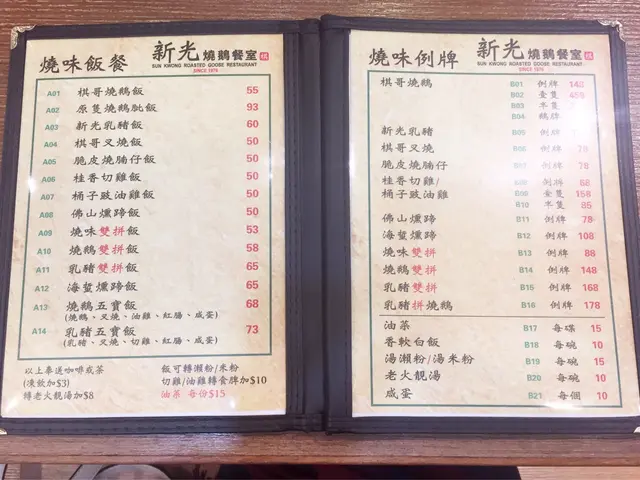 燒味飯餐 新光燒鵝餐室
SUN KWONG ROASTED GOOSE RESTAURANT
SINCE 1978
A01 棋哥燒鵝飯 55
A02 原隻燒鵝髀飯 93
A03 新光乳豬飯 60
A04 棋哥叉燒飯 50
A05 脆皮燒腩仔飯 50
A06 桂香切雞飯 50
A07 桶子豉油雞飯 50
A08 佛山燻蹄飯 50
A09 燒味雙拼飯 53
A10 燒鵝雙拼飯 58
A11 乳豬雙拼飯 65
A12 海蜇燻蹄飯 65
A13 燒鵝五寶飯 68
(燒鵝、叉燒、油雞、紅腸、咸蛋)
A14 乳豬五寶飯 73
(乳豬、叉燒、切雞、紅腸、咸蛋)
以上奉送咖啡或茶
(凍飲加$3)
轉老火靚湯加$8
飯可轉瀨粉/米粉
切雞/油雞轉食髀加$10
油菜 每份$15
燒味例牌 新光燒鵝餐室
SUN KWONG ROASTED GOOSE RESTAURANT
SINCE 1978
棋哥燒鵝 B01 例牌
B02 壹隻
B03 半隻
B04 鵝髀
新光乳豬 B05 例牌
棋哥叉燒 B06 例牌 78
脆皮燒腩仔 例牌 78
桂香切雞/ 例牌 68
桶子豉油雞 壹隻 158
B10 半隻 85
佛山燻蹄 B11 例牌 78
海蜇燻蹄 B12 例牌 108
燒味雙拼 B13 例牌 88
燒鵝雙拼 B14 例牌 148
乳豬雙拼 B15 例牌 168
乳豬拼燒鵝 B16 例牌 178
油菜 B17 每碟 15
香軟白飯 B18 每碗 10
湯瀨粉/湯米粉 B19 每碗 15
老火靚湯 B20 每碗 10
咸蛋 B21 每個 10